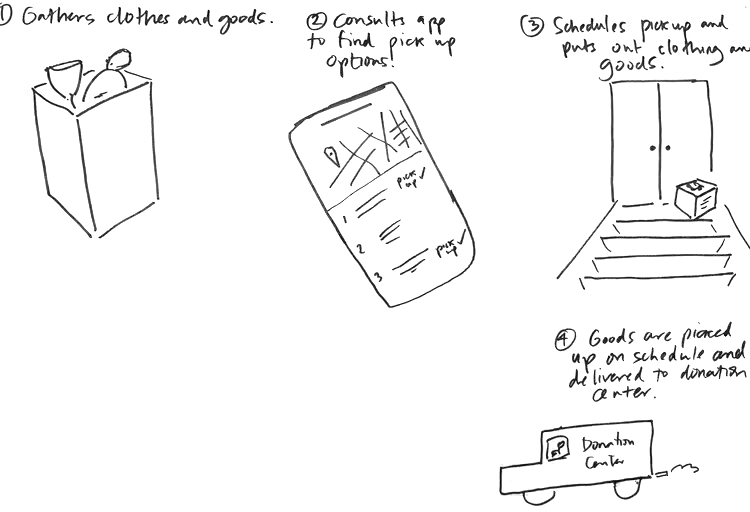 ① Gathers clothes and goods.
② Consults app
to find pick up
options!
③ Schedules pickup and
puts out clothing an
goods.
pick
up ✓
1
2
pick
up ✓
3
④ Goods are picked
up on schedule and
delivered to donation
center.
Donation
Center